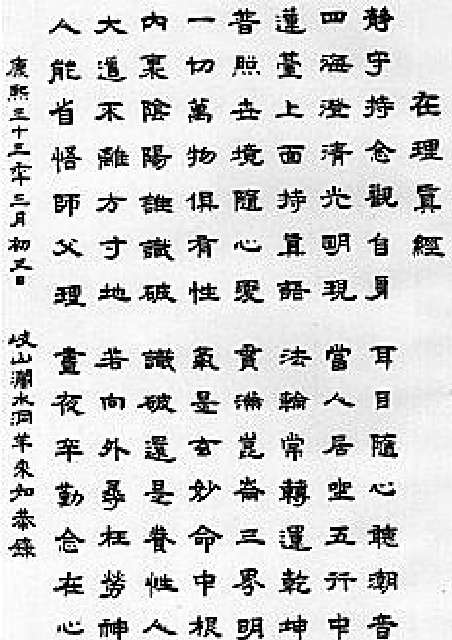 在理眞經
靜守持念觀自身 耳目隨心聽潮音
四海澄清光明現 當人居坐五行中
蓮臺上面持眞語 法輪常轉運乾坤
普照世境隨心變 貫滿崑崙三界明
一切萬物俱有性 氣是玄妙命中根
內裏陰陽誰識破 識破還是養性人
大道不離方寸地 若向外尋枉勞神
人能省悟師父理 晝夜辛勤念在心
康熙三十三年三月初五日 岐山瀾水洞羊來如恭錄